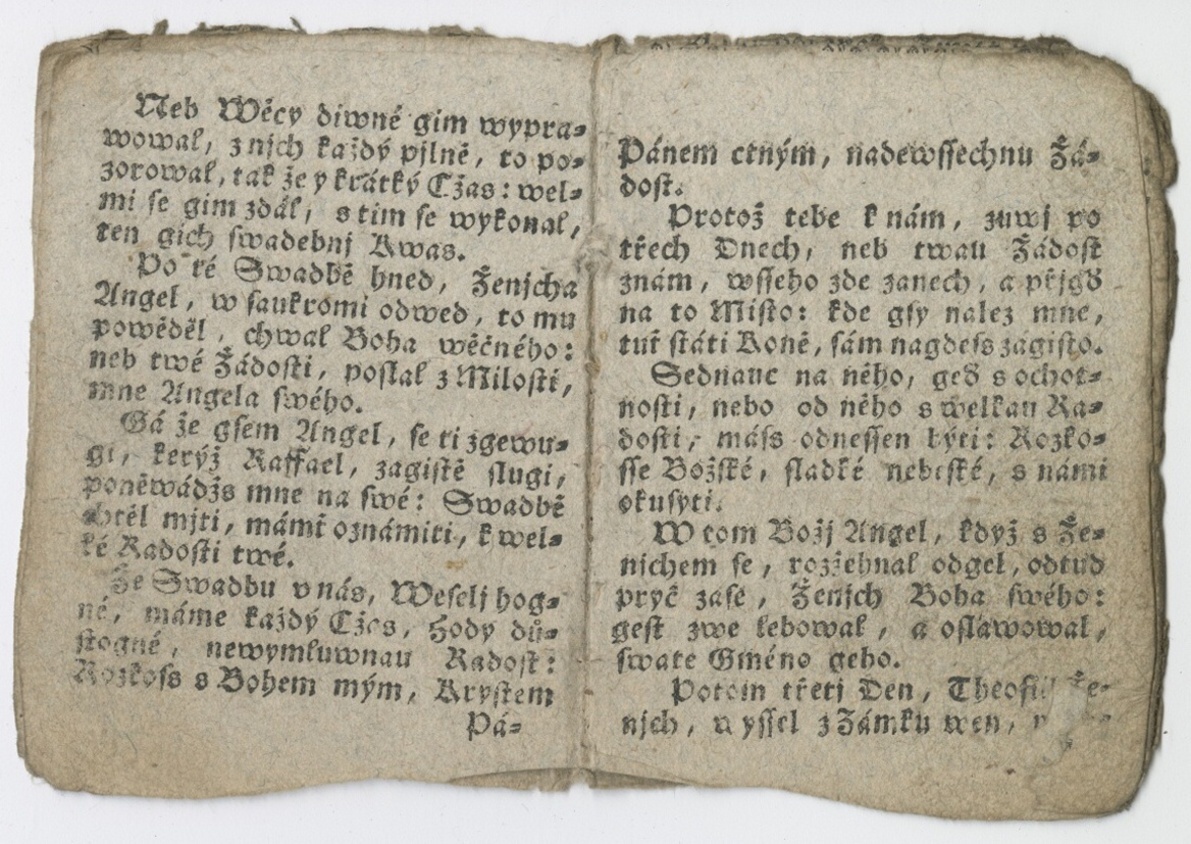 Neb Wěcy diwné gim wypra=
wowal, z nich každý pilně, to po=
zorowal, tak že y krátký Cžas: wel=
mi se gim zdál, s tim se wykonal,
ten gich swadebnj Kwas.
Po té Swadbě hned, Ženjcha
Angel, w saukromi odwed, to mu
powěděl, chwal Boha wěčného:
neb twé Žádosti, poslal z Milosti,
mne Angela swého.
Gá že gsem Angel, se ti zgewu=
gi, kerýž Raffael, zagistě slugi,
poněwádžs mne na swé: Swadbě
chtěl mjti, mámť oznámiti, k wel=
ké Radosti twé.
Že Swadbu v nás, Weselj hog=
né, máme každý Cžas, Hody dů=
stogné, newymluwnau Radost:
Rozkoss s Bohem mým, Krystem
Pá=
Pánem ctným, nadewssechnu Žá=
dost.
Protož tebe k nám, zuwj po
třech Dnech, neb twau Žádost
znám, wsseho zde zanech, a přjgď
na to Misto: kde gsy nalez mne,
tuť státi Koně, sám nagdess zagisto.
Sednauc na něho, geď s ochot=
nosti, nebo od něho s welkau Ra=
dosti, máss odnessen býti: Rozko=
sse Božské, sladké nebeské, s námi
okusyti.
W tom Božj Angel, když s Že=
nichem se, rozžehnal odgel, odtud
pryč zase, Ženjch Boha swého:
gest zwelebowal, a oslawowal,
swate Gméno geho.
Potom třetj Den, Theofil Že=
njch, wyssel z Zámku wen,